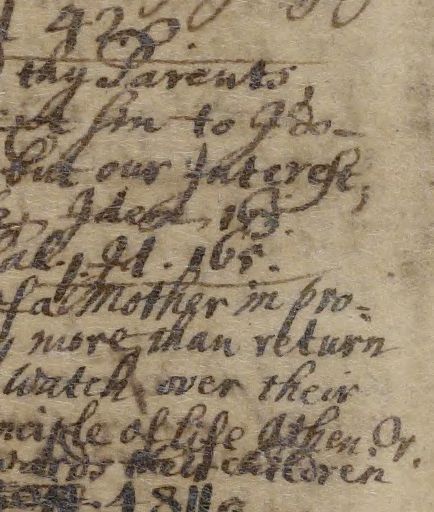 428.
thy Parents,
sin to Ido-
but our Interest,
Idem. 163.
al. 91. 165.
of a Mother in pro-
more than return
watch over their
nciple of life Athen. Or.
wards their children